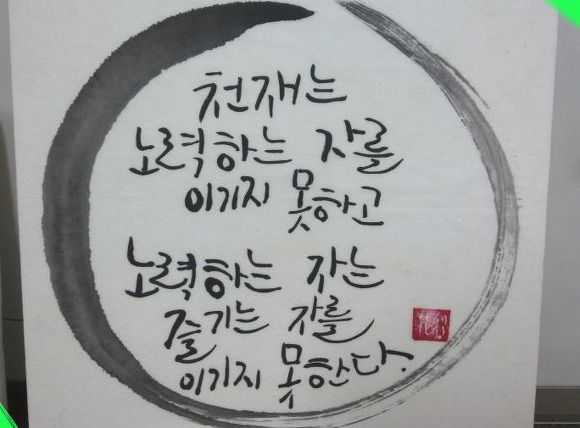 천재는
노력하는 자를
이기지 못하고
노력하는 자는
즐기는 자를
이기지 못한다.